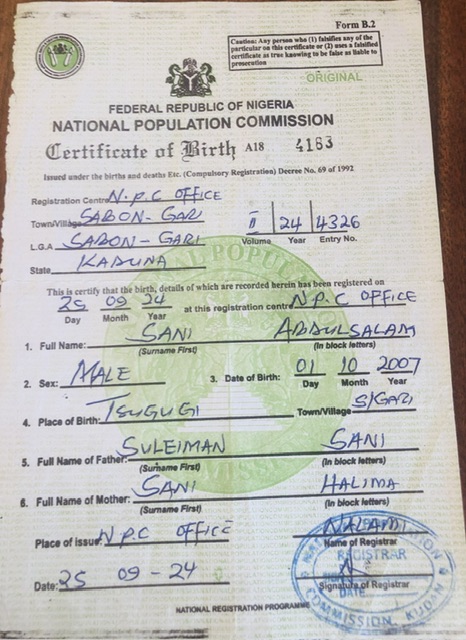 Form B.2
Caution: Any person who (1) falsifies any of the
particular on this certificate or (2) uses a falsified
certificate as true knowing to be false as liable to
prosecution
ORIGINAL
FEDERAL REPUBLIC OF NIGERIA
NATIONAL POPULATION COMMISSION
Certificate of Birth A18 4163
Issued under the births and deaths Etc. (Compulsory Registration) Decree No. 69 of 1992
Registration Centre N.P.C OFFICE
Town/Village SABON-GARI
II 24 4326
L.G.A SABON-GARI Volume Year Entry No.
State KADUNA
This is certify that the birth, details of which are recorded herein has been registered on
25 09 24 at this registration centre N.P.C OFFICE
Day Month Year
1. Full Name: SANI ABDULSALAM
(Surname First) (In block letters)
2. Sex: MALE 3. Date of Birth: 01 10 2007
Day Month Year
4. Place of Birth: TSUGUGI Town/Village S/GARI
5. Full Name of Father: SULEIMAN SANI
(Surname First) (In block letters)
6. Full Name of Mother: SANI HALIMA
(Surname First) (In block letters)
Place of issue: N.P.C OFFICE NALAMI
Name of Registrar
REGISTRAR
Date: 25 09-24
Signature of Registrar
DATE
COMMISSION, KUDAN
NATIONAL REGISTRATION PROGRAMME